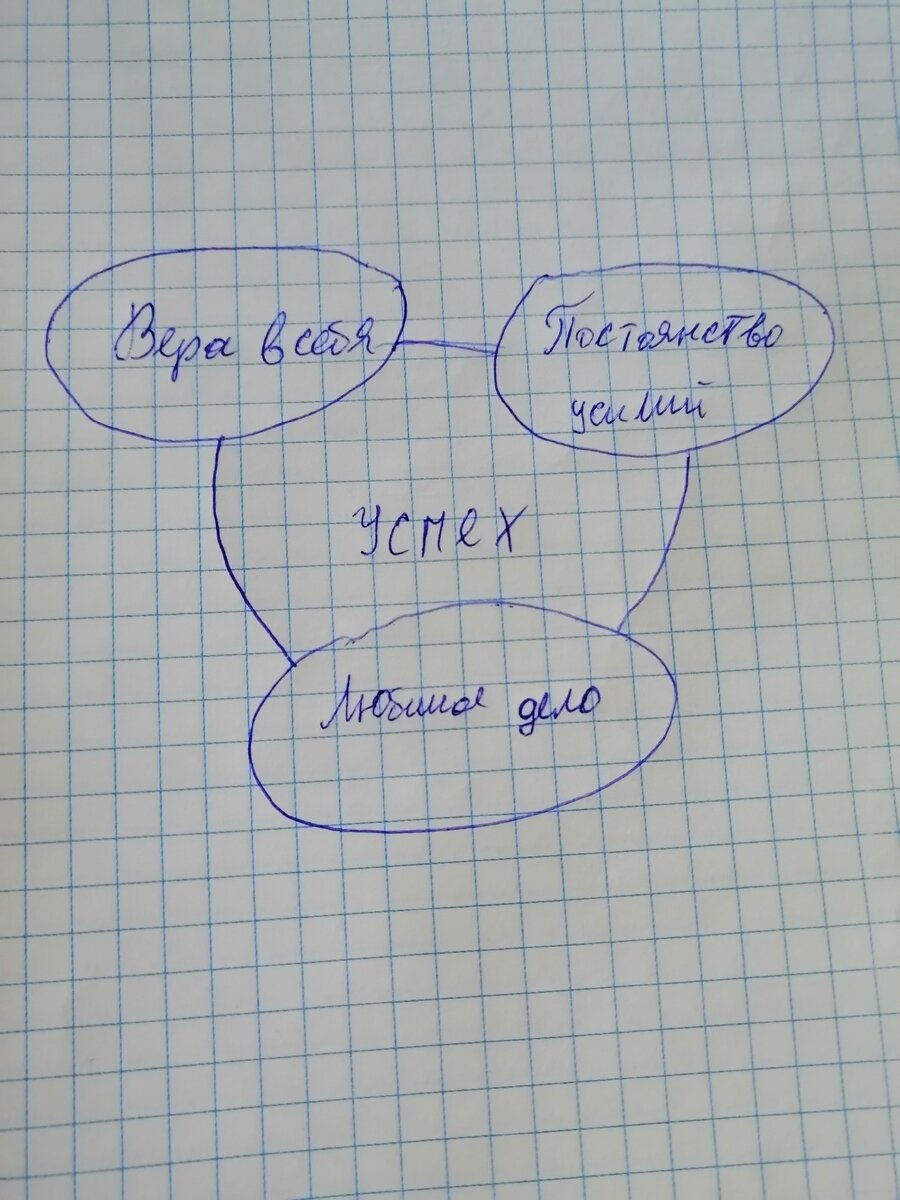 Вера в себя
Постоянство
усилий
УСПЕХ
Любимое дело